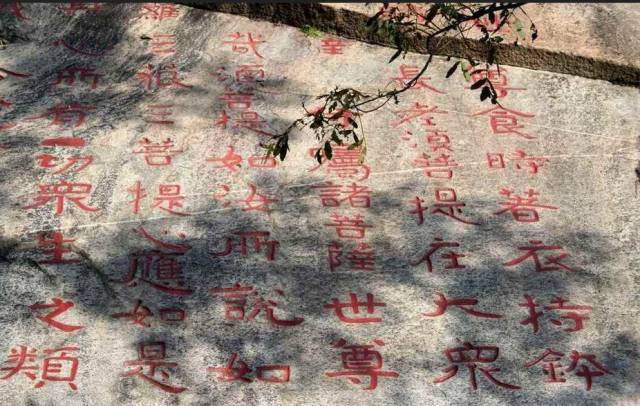 尊食時著衣持鉢
長老湏菩提在大衆
薩囑諸菩薩世尊
哉湏菩提如汝所說如
羅三藐三菩提心應如是
心所有一切衆生之類